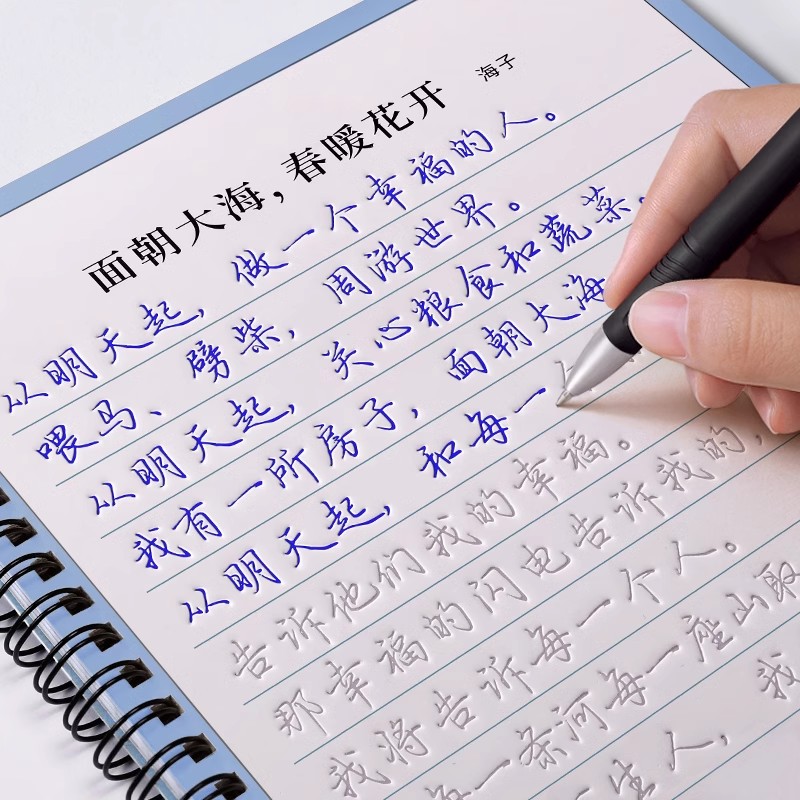 面朝大海，春暖花开
海子
从明天起，做一个幸福的人。
喂马、劈柴，周游世界。
从明天起，关心粮食和蔬菜，
我有一所房子，面朝大海
从明天起，和每一个
告诉他们我的幸福。
那幸福的闪电告诉我的，
我将告诉每一个人。
每一条河每一座山取
一生人，我